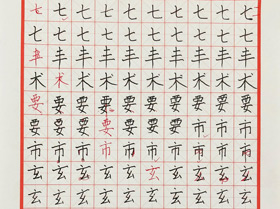 七七七七七七七七七七
七七七七七七七七七七
丰丰丰丰丰丰丰丰丰丰
术术术术术术术术术术
要要要要要要要要要要
要要要要要要要市市市
市市市市市市市市市市
玄玄玄玄玄玄玄玄玄玄
玄玄玄玄玄玄玄玄玄玄